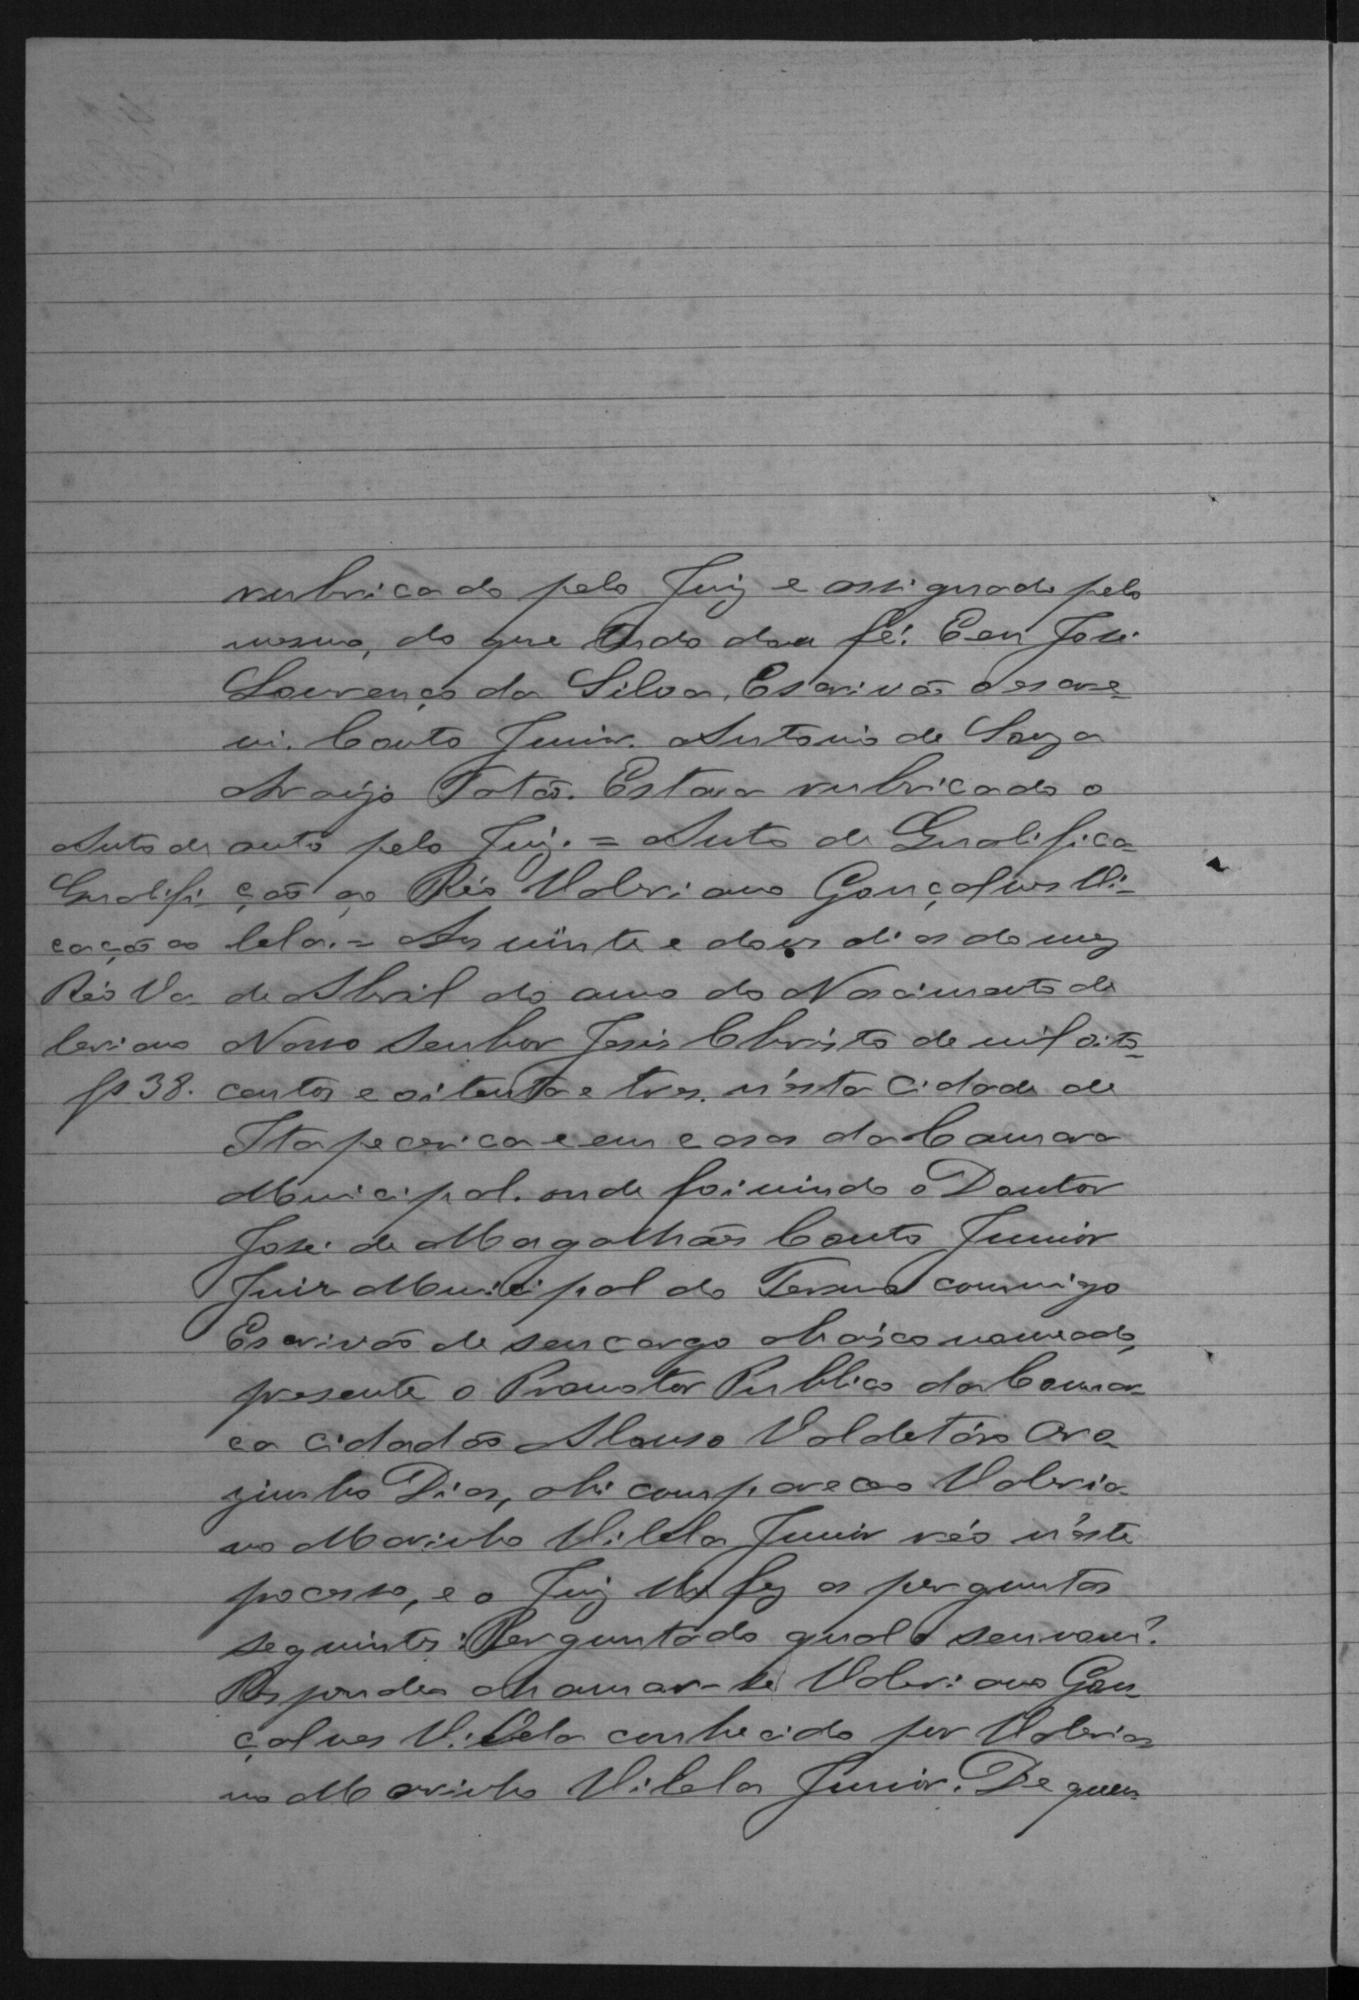 rubricado pelo Juiz e assignado pelo
mesmo, do que tudo dou fé. E eu José
Lourenço da Silva, Escrivão o escre-
vi. Couto Junior. Antonio de Souza
Araújo Fatão. Estava rubricado o
auto pelo Juiz. = Auto de Qualifica-
ção ao Réo Valeriano Gonçalves Vi-
lela. = Aos vinte e dous dias do mez
de Abril do anno do Nascimento de
Nosso Senhor Jesus Christo de mil oito-
centos e oitenta e tres, n'esta Cidade de
Itapecerica e em casas da Camara
Municipal, onde foi vindo o Doutor
José de Magalhães Couto Junior
Juiz Municipal do Termo commigo
Escrivão de seu cargo abaixo nomeado,
presente o Promotor Publico da Comar-
ca cidadão Alonso Valdetáro
Dias, ahi compareceo Valeria-
no Marinho Vilela Junior réo n'este
pocesso, e o Juiz lhe fez as perguntas
seguintes: Perguntado qual o seu nome?
Respondeo chamar-se Valeriano Gon-
çalves Vilela conhecido por Valeria-
no Marinho Vilela Junior. De quem
Auto de
Qualifi-
cação ao
Réo Va-
leriano
fs 38.